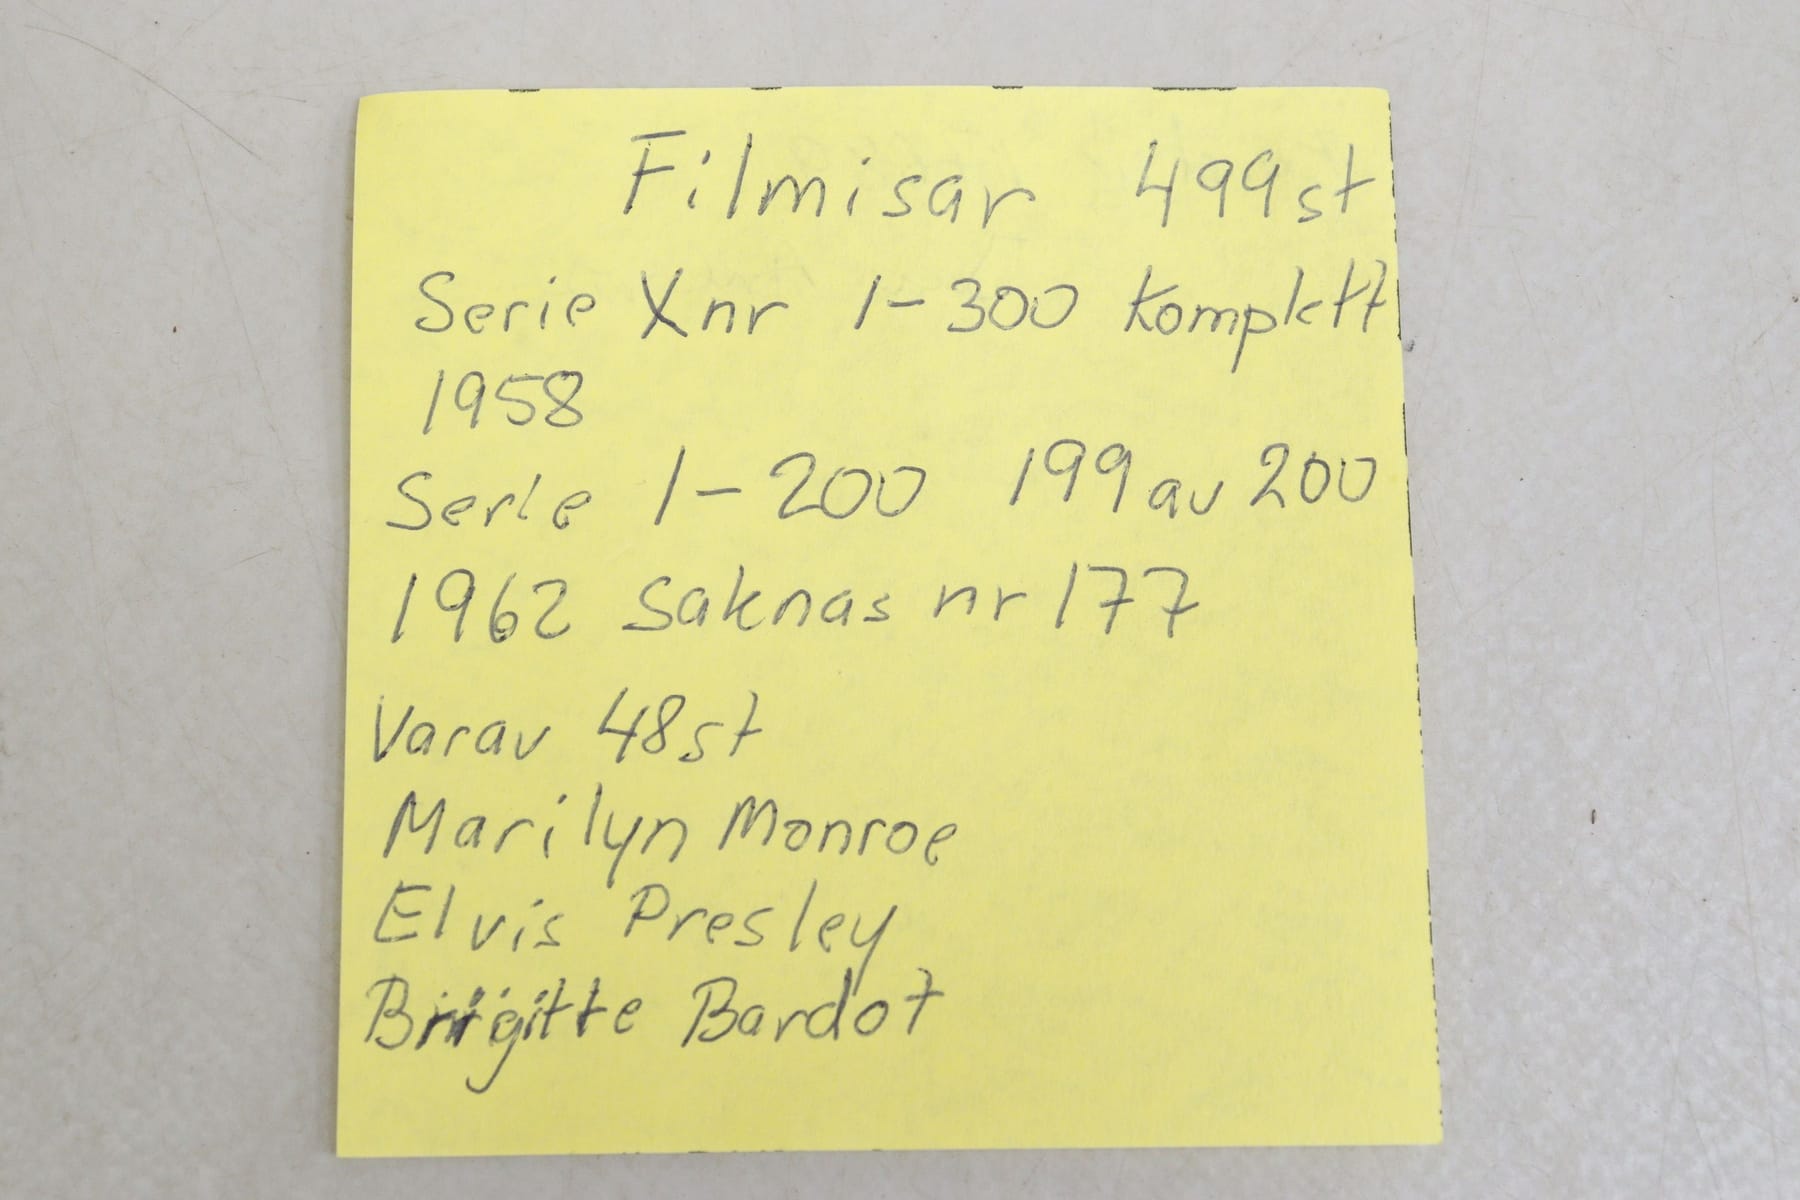 Filmisar 499st
Serie Xnr 1-300 komplett
1958
Serie 1-200 199 av 200
1962 Saknas nr 177
Varav 48st
Marilyn Monroe
Elvis Presley
Brigitte Bardot